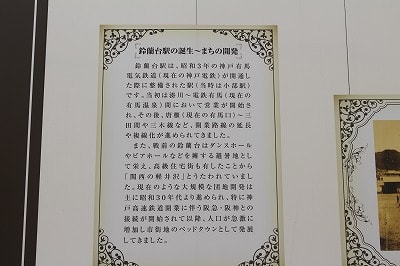 鈴蘭台駅の誕生～まちの開発
鈴蘭台駅は、昭和3年の神戸有馬
電気鉄道(現在の神戸電鉄)が開通し
た際に整備された駅(当時は小部駅)
です。当初は湊川～電鉄有馬(現在の
有馬温泉)間において営業が開始さ
れ、その後、唐櫃(現在の有馬口)～三
田間や三木線など、開業路線の延長
や複線化が進められてきました。
また、戦前の鈴蘭台はダンスホール
やビアホールなどを擁する避暑地とし
て栄え、高級住宅街も有したことから
「関西の軽井沢」とうたわれていまし
た。現在のような大規模な団地開発は
主に昭和30年代より進められ、特に神
戸高速鉄道開業に伴う阪急・阪神との
接続が開始されて以降、人口が急激に
増加し市街地のベッドタウンとして発展
してきました。